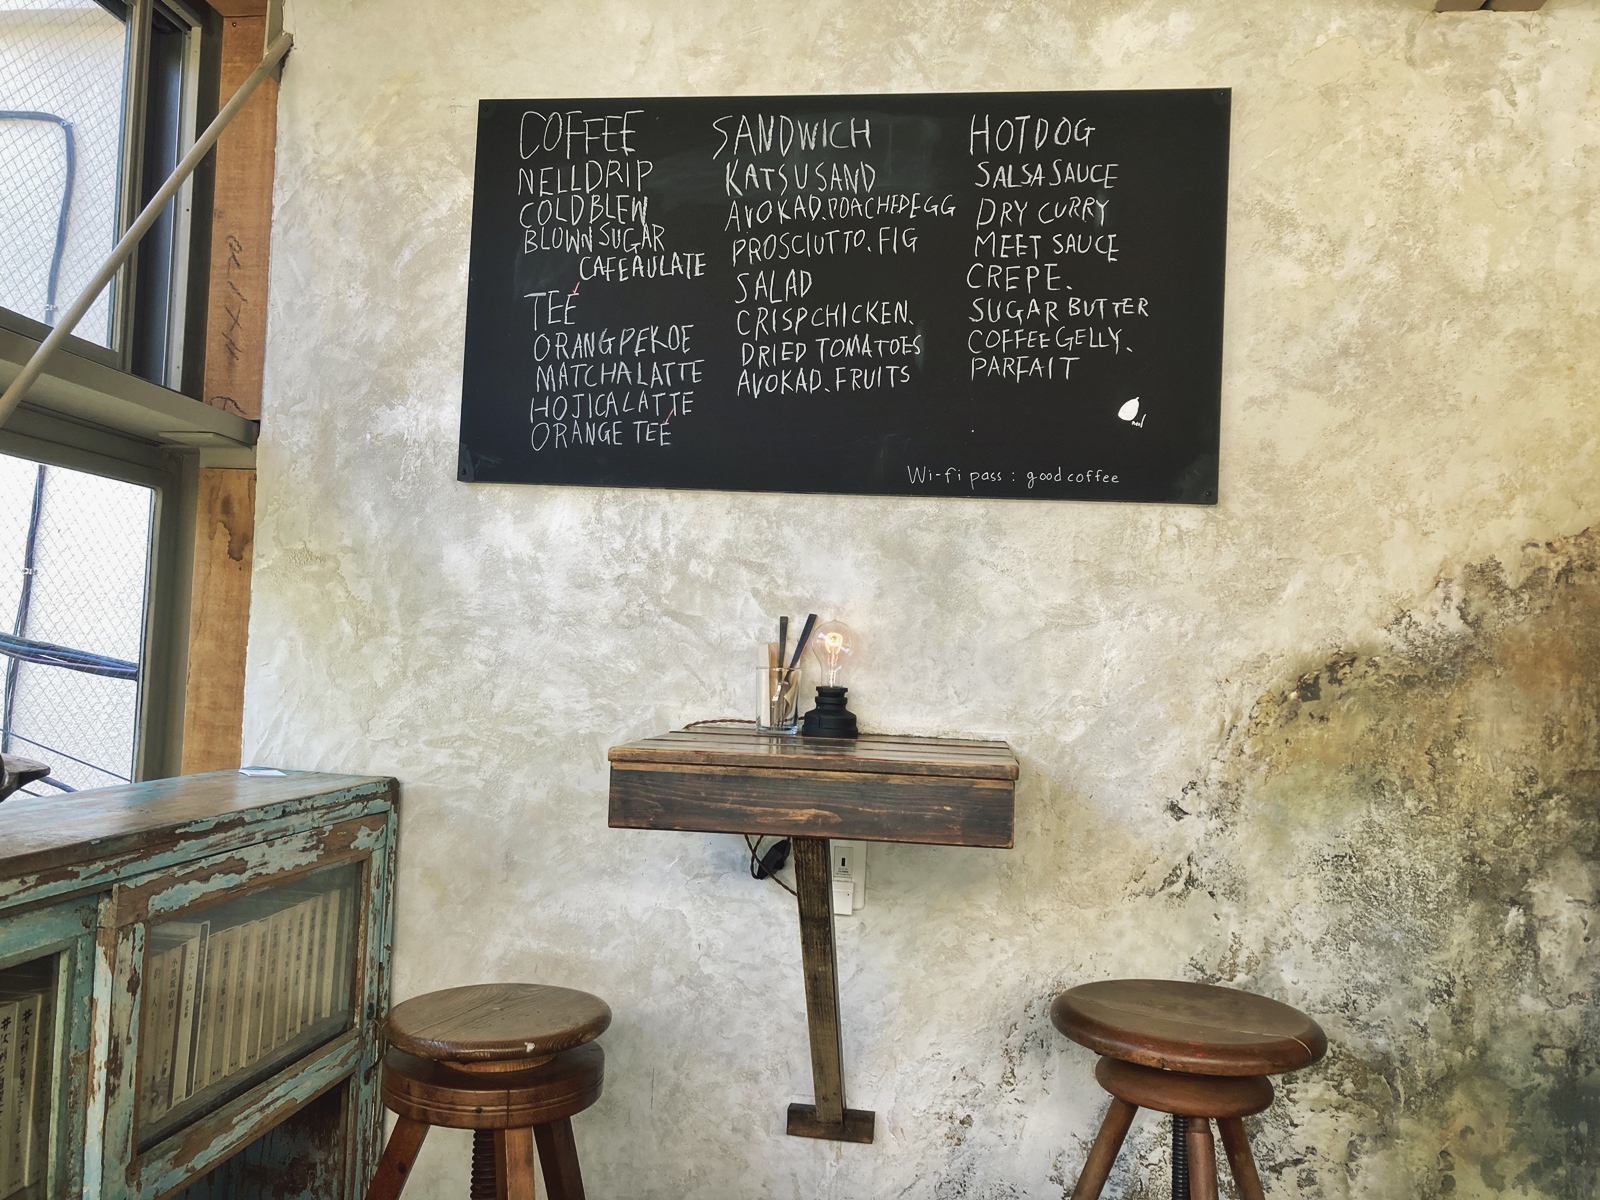 COFFEE
NELLDRIP
COLDBLEW
BLOWNSUGAR
CAFEAULATE
TEE
ORANGPEKOE
MATCHALATTE
HOJICALATTE
ORANGE TEE
SANDWICH
KATSUSAND
AVOKAD.POACHEDEGG
PROSCIUTTO. FIG
SALAD
CRISPCHICKEN.
DRIED TOMATOES
AVOKAD. FRUITS
HOTDOG
SALSA SAUCE
DRY CURRY
MEET SAUCE
CREPE.
SUGAR BUTTER
COFFEEGELLY.
PARFAIT
Wi-fi pass : good coffee